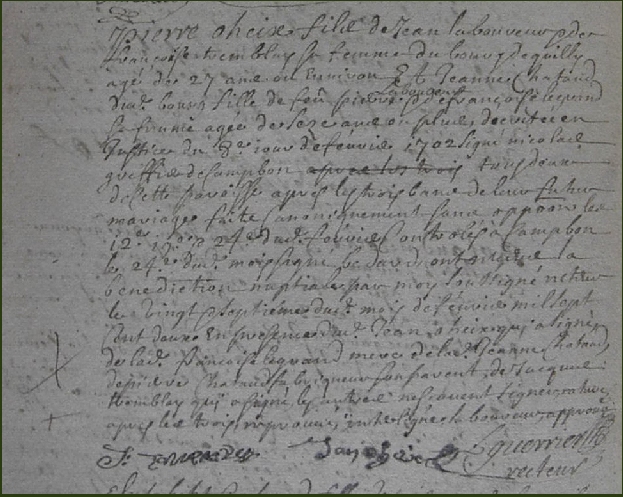 pierre oheix fils de Jean laboureur et de
francoise tremblay sa femme du bourg de quilly
agé de 27 ans ou environ Et Jeanne Chataud
dud. bourg fille de feu pierre laboureur et de françoise legrand
sa femme agée de seze ans ou plus, decretée en
Justice du 8e jour de feuvrier 1702 signé nicolas
greffier de Campbon apres les trois tous deux
de cette paroisse apres les trois bans de leur futur
mariage faits canoniquement sans opposon les
12e 19e et 24e dud. feuvrier controlés a Campbon
le 24e dud. mois signé ont la
benediction nuptiale par moy soussigné recteur
le vingt et septiéme dud. mois de feuvrier mil sept
cent deux En presence dud. Jean oheix qui a signé
de lad. françoise legrand mere de lad. Jeanne Chataud
de pierre Chataud de Jacques
tremblay qui a signé les autres ne scavent signer
apres les trois interligne laboureur approuvé
J. Jan oheix guerrier
recteur